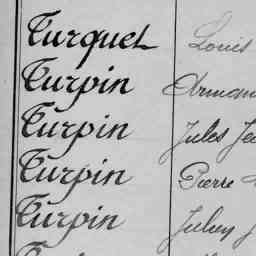 Turquet Louis
Turpin Arman
Turpin Jules Je
Turpin Pierre
Turpin